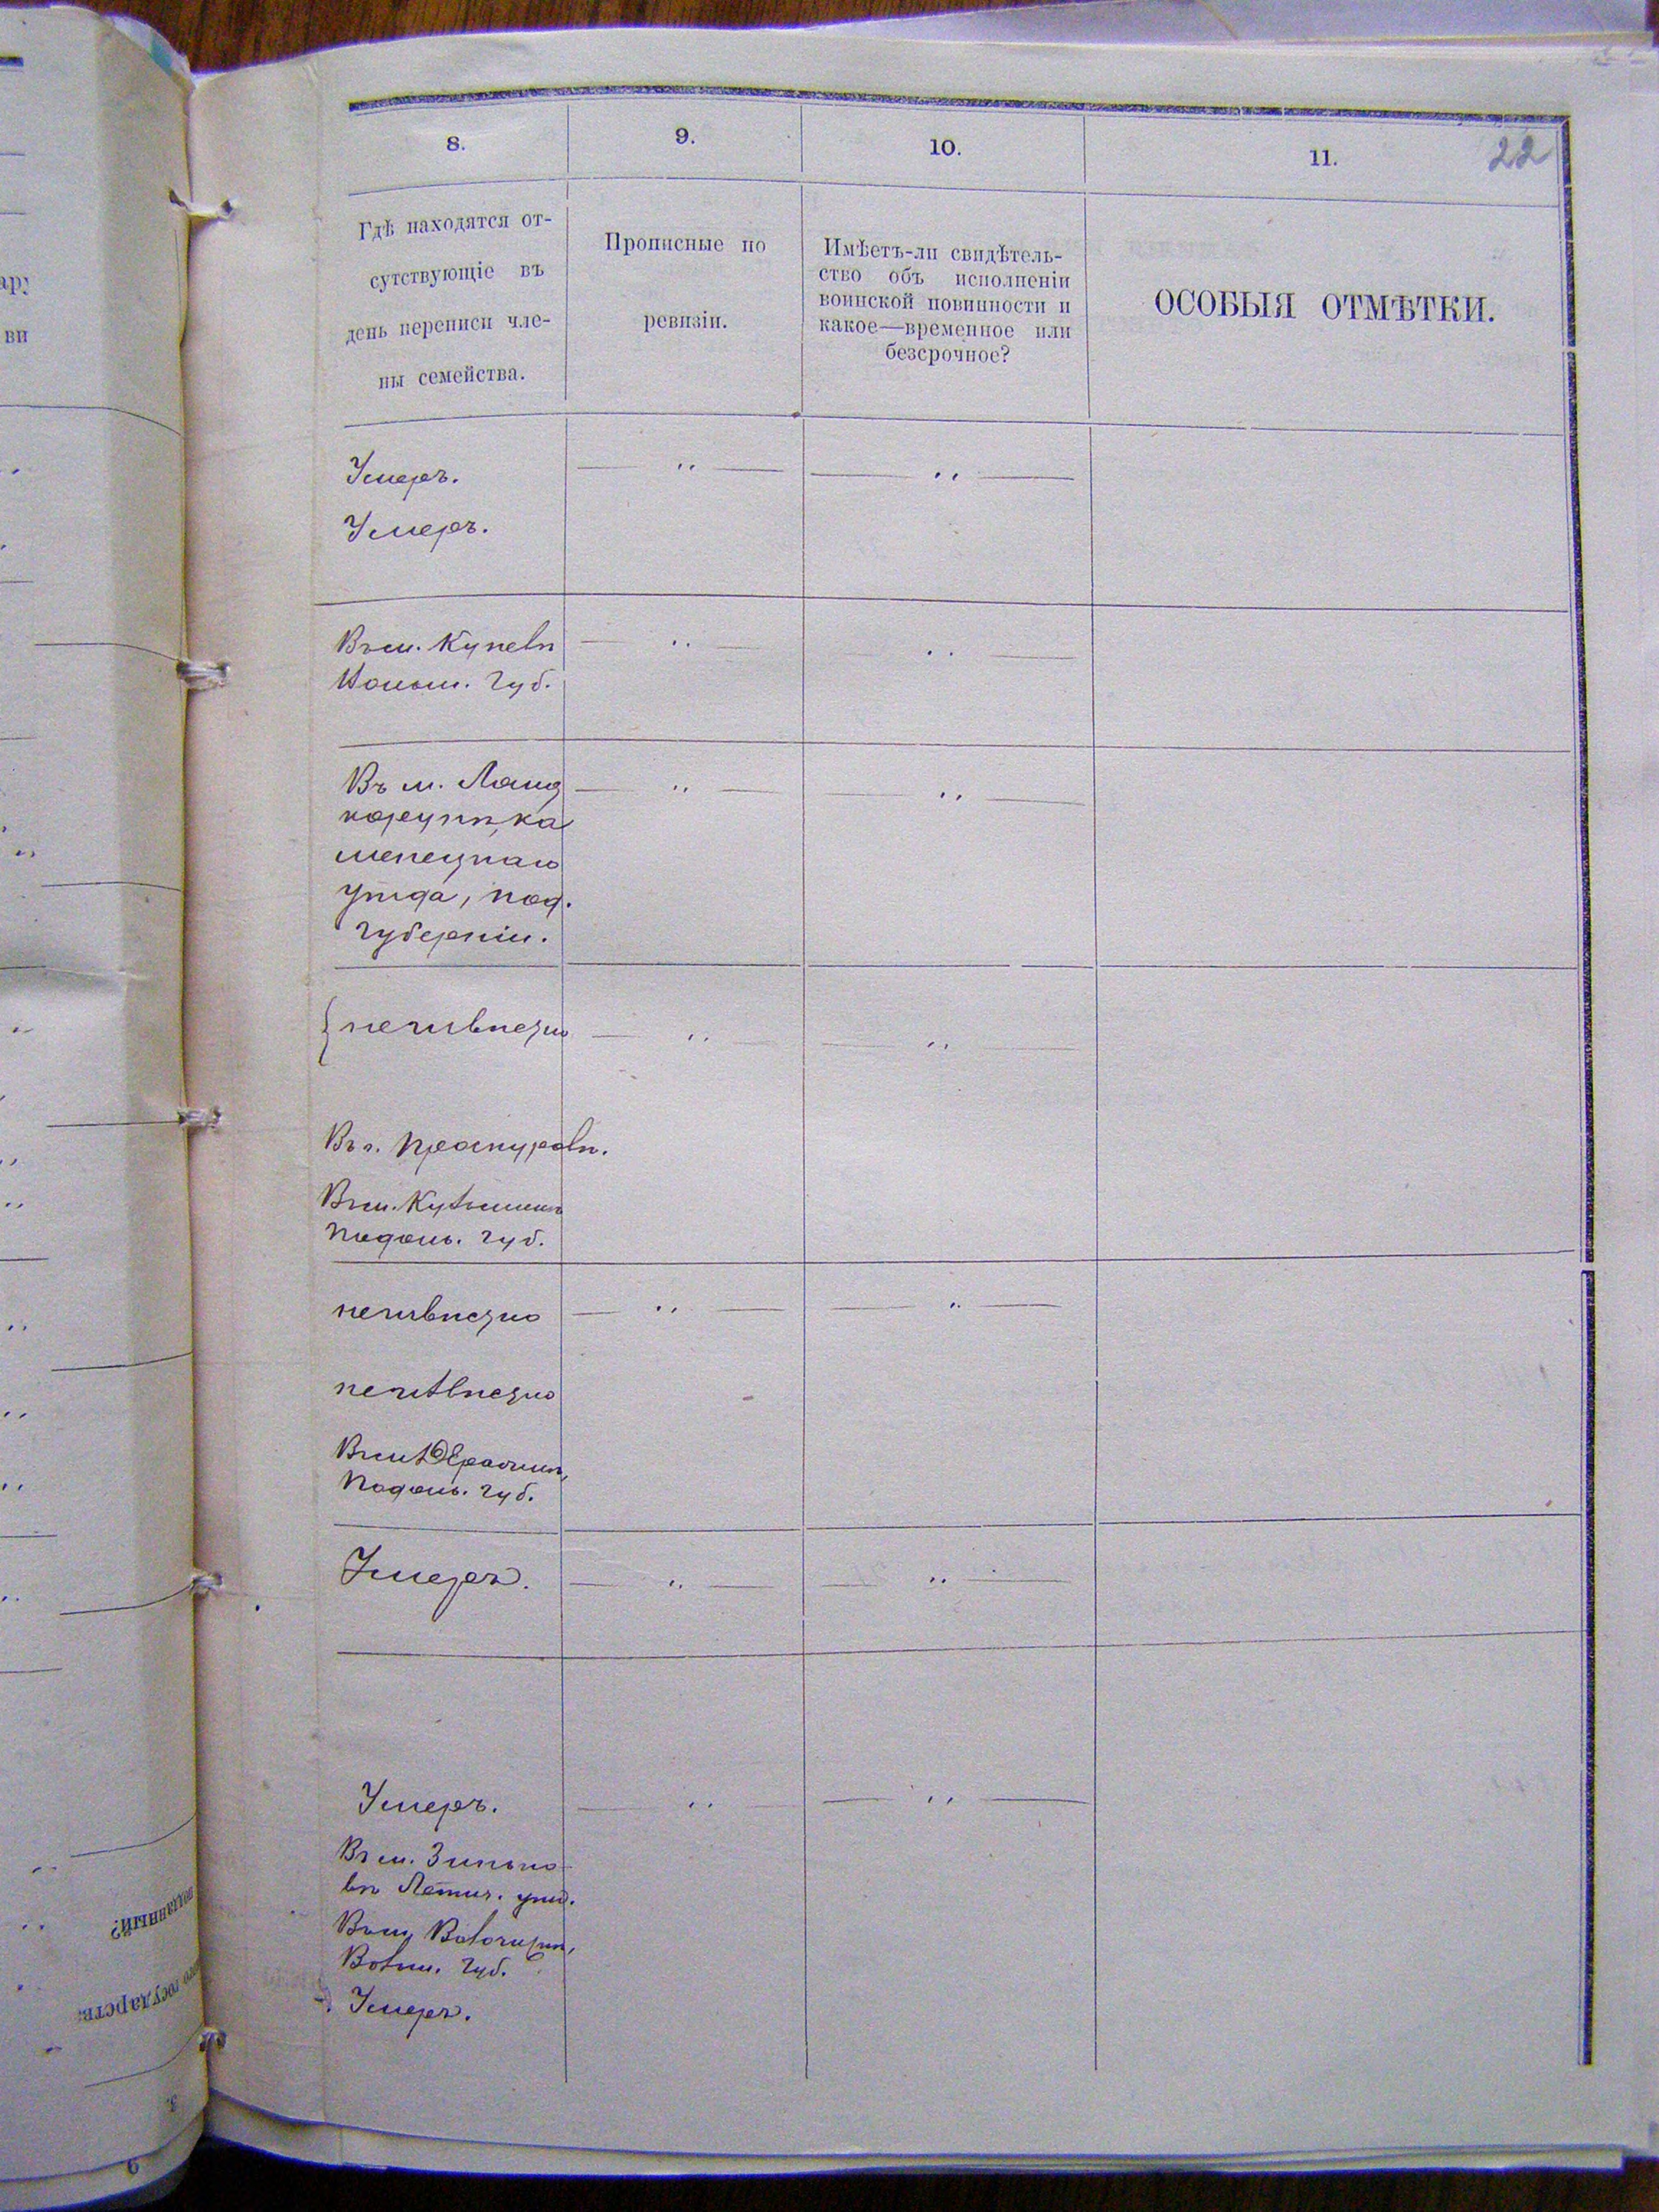 22
8.
9.
10.
11.
Гдѣ находятся от-
сутствующіе въ
день переписи чле-
ны семейства.
Прописные по
ревизіи.
Имѣетъ-ли свидѣтель-
ство объ исполненіи
воинской повинности и
какое—временное или
безсрочное?
ОСОБЫЯ ОТМѢТКИ.
Умеръ.
Умеръ.
Въ м. Купелѣ
Волын. губ.
Въ м. Ланц
корунѣ, ка
менецкаго
уѣзда, под.
губерніи.
неизвѣстно
Въ г. Проскуровѣ.
Въ м.
Подоль. губ.
неизвѣстно
неизвѣстно
Подоль. губ.
Умеръ.
Умеръ.
Въ м. Зинько
вѣ Летич. уѣзд.
Волын. губ.
Умеръ.
подданный?
государств